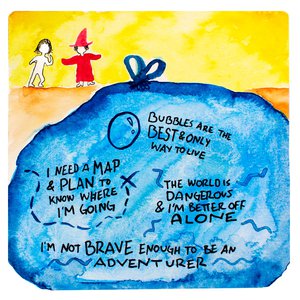 BUBBLES ARE THE
BEST & ONLY
WAY TO LIVE
I NEED A MAP
& PLAN TO
KNOW WHERE
I'M GOING
THE WORLD IS
DANGEROUS
& I'M BETTER OFF
ALONE
I'M NOT BRAVE ENOUGH TO BE AN
ADVENTURER